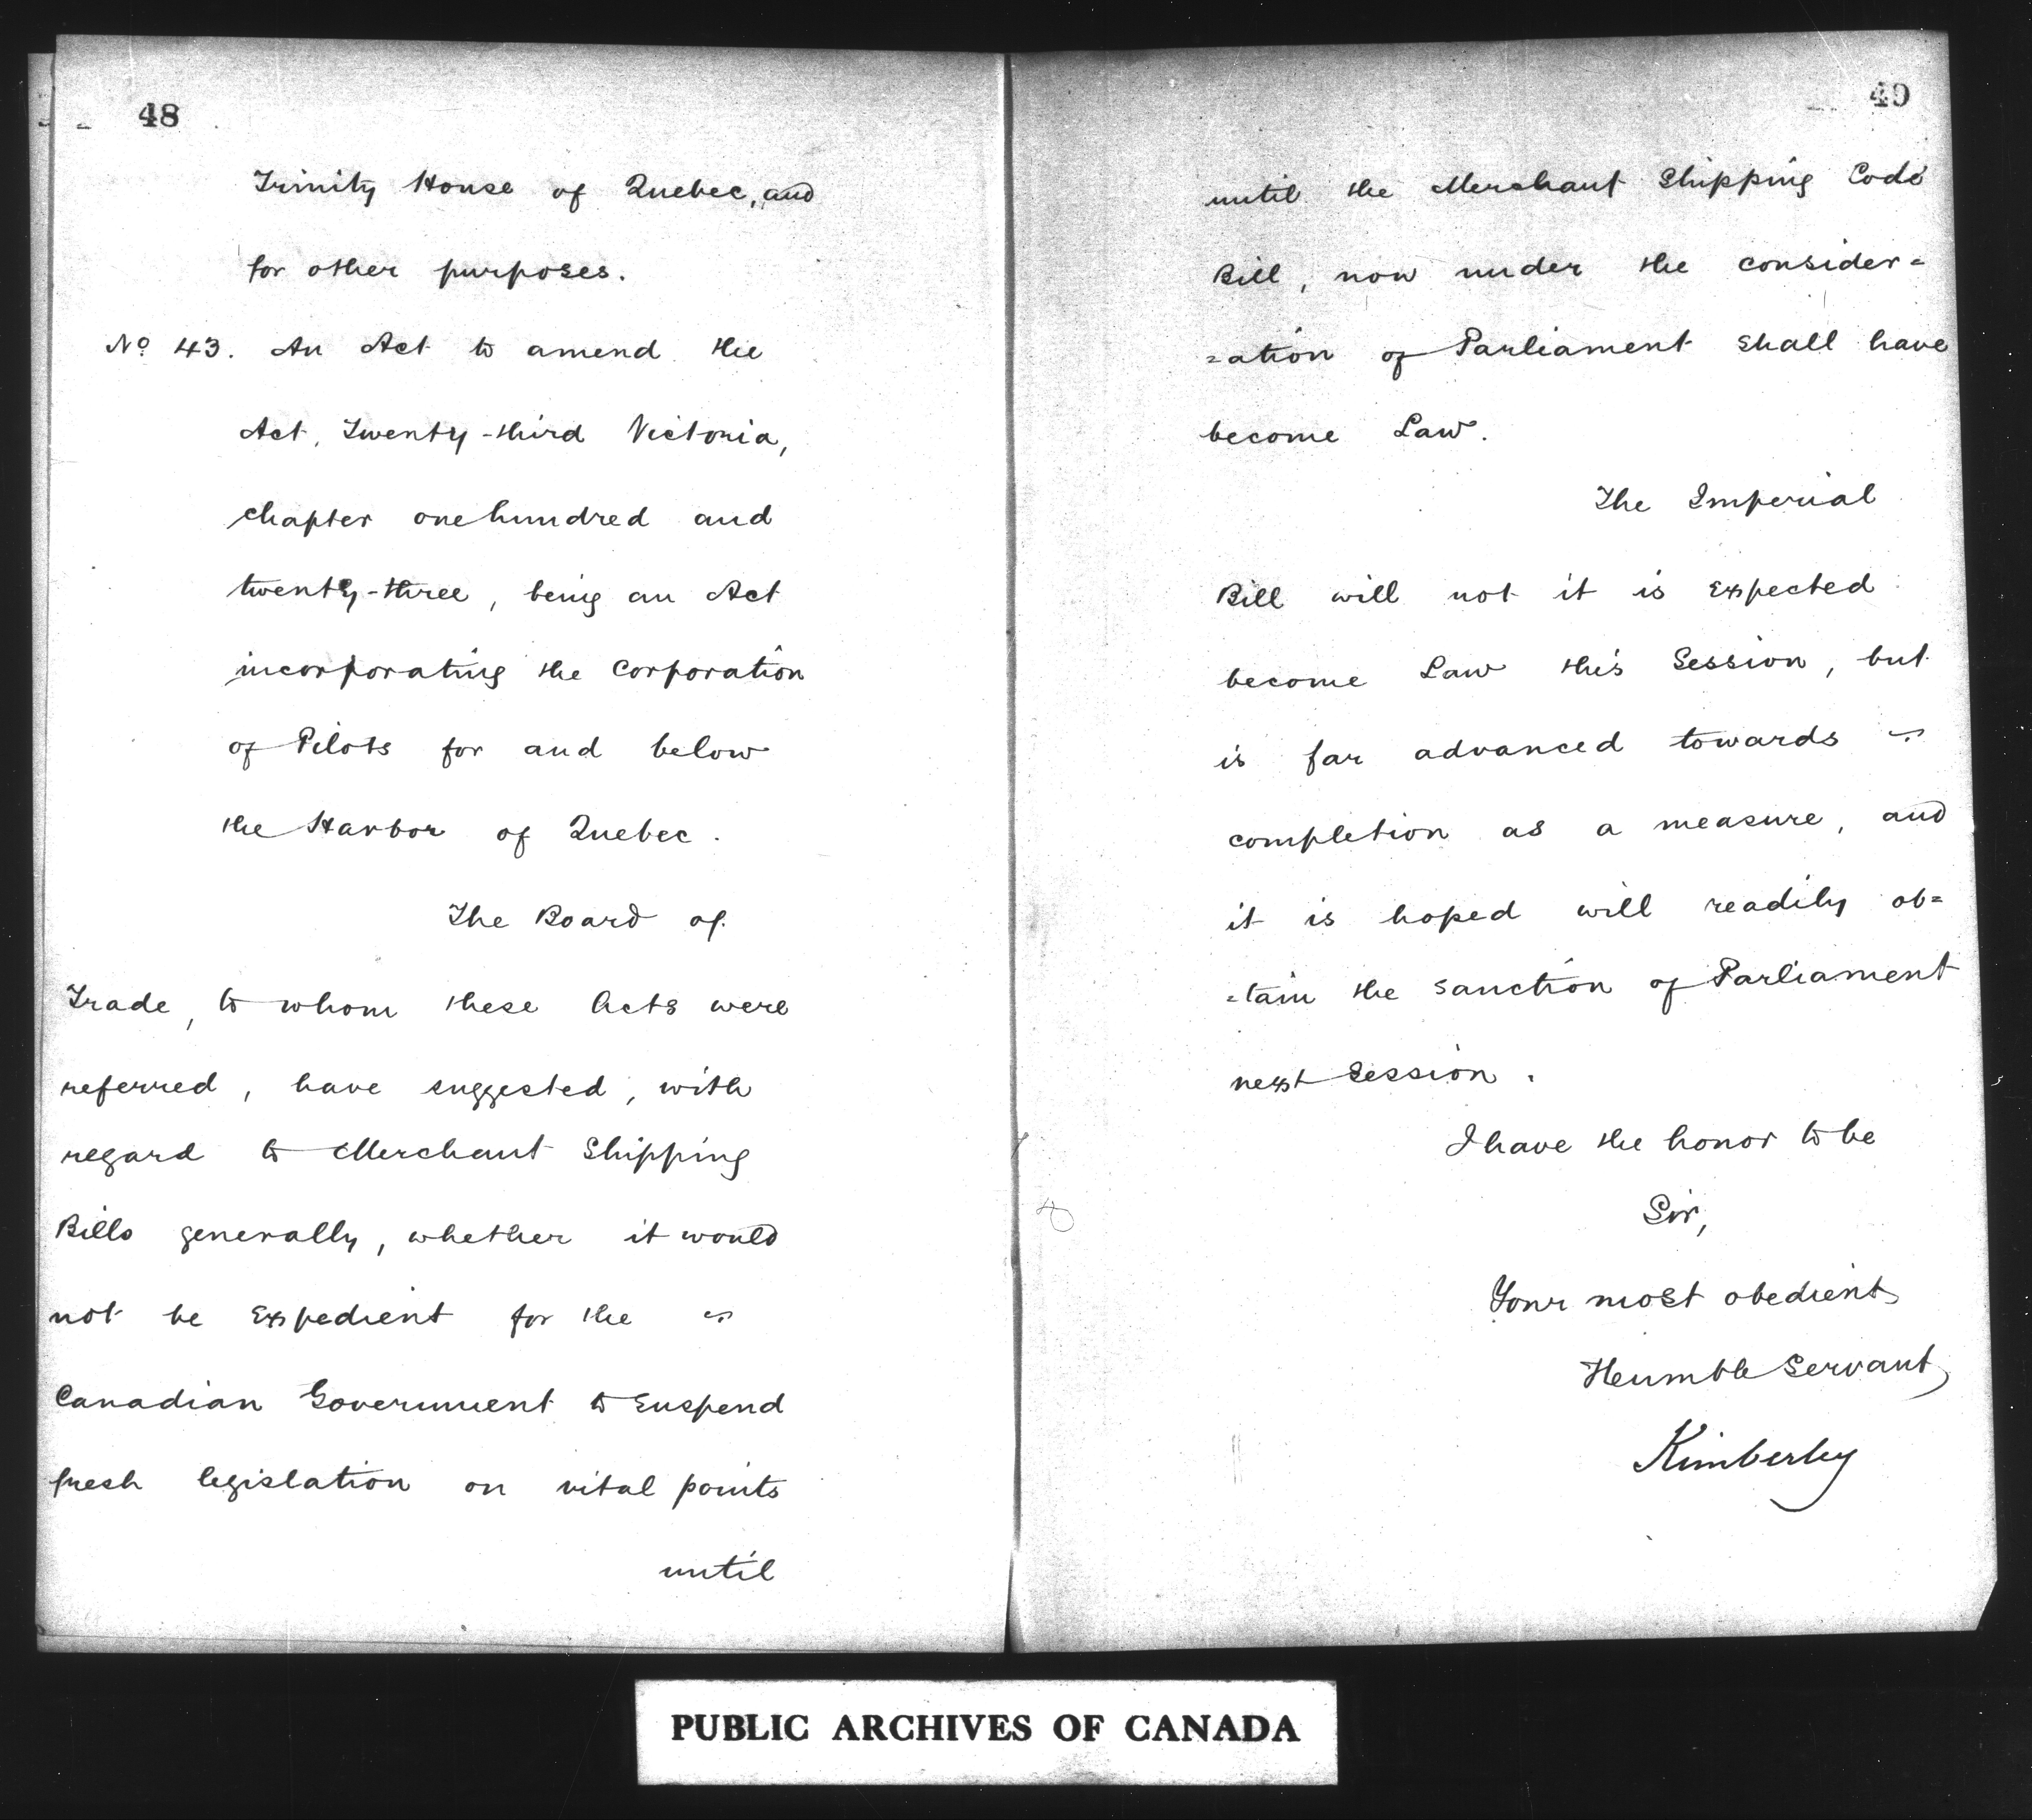 48
Trinity House of Quebec, and
for other purposes.
No 43. An Act to amend the
Act, Twenty-third Victoria,
chapter one hundred and
twenty-three, being an Act
incorporating the Corporation
of Pilots for and below
the Harbor of Quebec.
The Board of
Trade, to whom these Acts were
referred, have suggested, with
regard to Merchant Shipping
Bills generally, whether it would
not be expedient for the
Canadian Government to suspend
fresh legislation on vital points
until
49
until the Merchant Shipping Code
Bill, now under the consider=
=ation of Parliament shall have
become Law.
The Imperial
Bill will not it is expected
become Law this Session, but
is far advanced towards
completion as a measure, and
it is hoped will readily ob=
=tain the sanction of Parliament
next Session.
I have the honor to be
Sir,
Your most obedient
Humble Servant
Kimberley
PUBLIC ARCHIVES OF CANADA